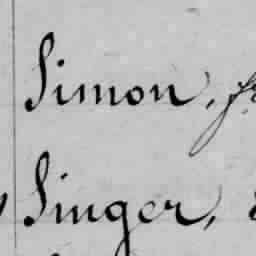 Simon,
Singer,